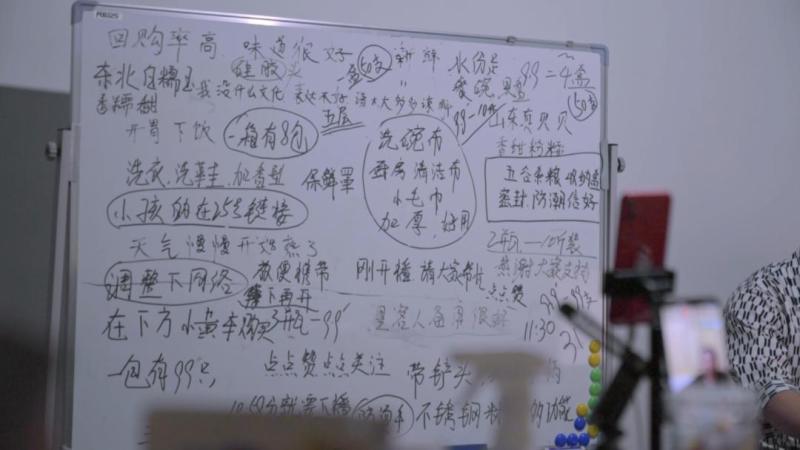 回购率高 味道很好 新鲜 水份足
硅胶头 一盒50支 99=4盒
东北白糯玉 我没什么文化 表达不好 请大大多多谅解 50支
香糯甜 99-10 山东贝贝
开胃下饭 一箱有8包 五层
洗碗布 香甜粉糯
洗衣.洗鞋 加香型 保鲜罩 厨房清洁布 五谷杂粮 收纳盒
小毛巾 密封.防潮倍好
小孩的在25号链接 加厚.好用
天气慢慢开始热了 2瓶一 10斤装
调整下网络 方便携带 刚开播 请大家 感谢大家支持
等下再开 点点赞 99 99
在下方小黄车购买 3瓶-99 是客人 很好 11:30
一包有99只 点点赞点点关注 带铲头
分就要下播 不锈钢 的功能